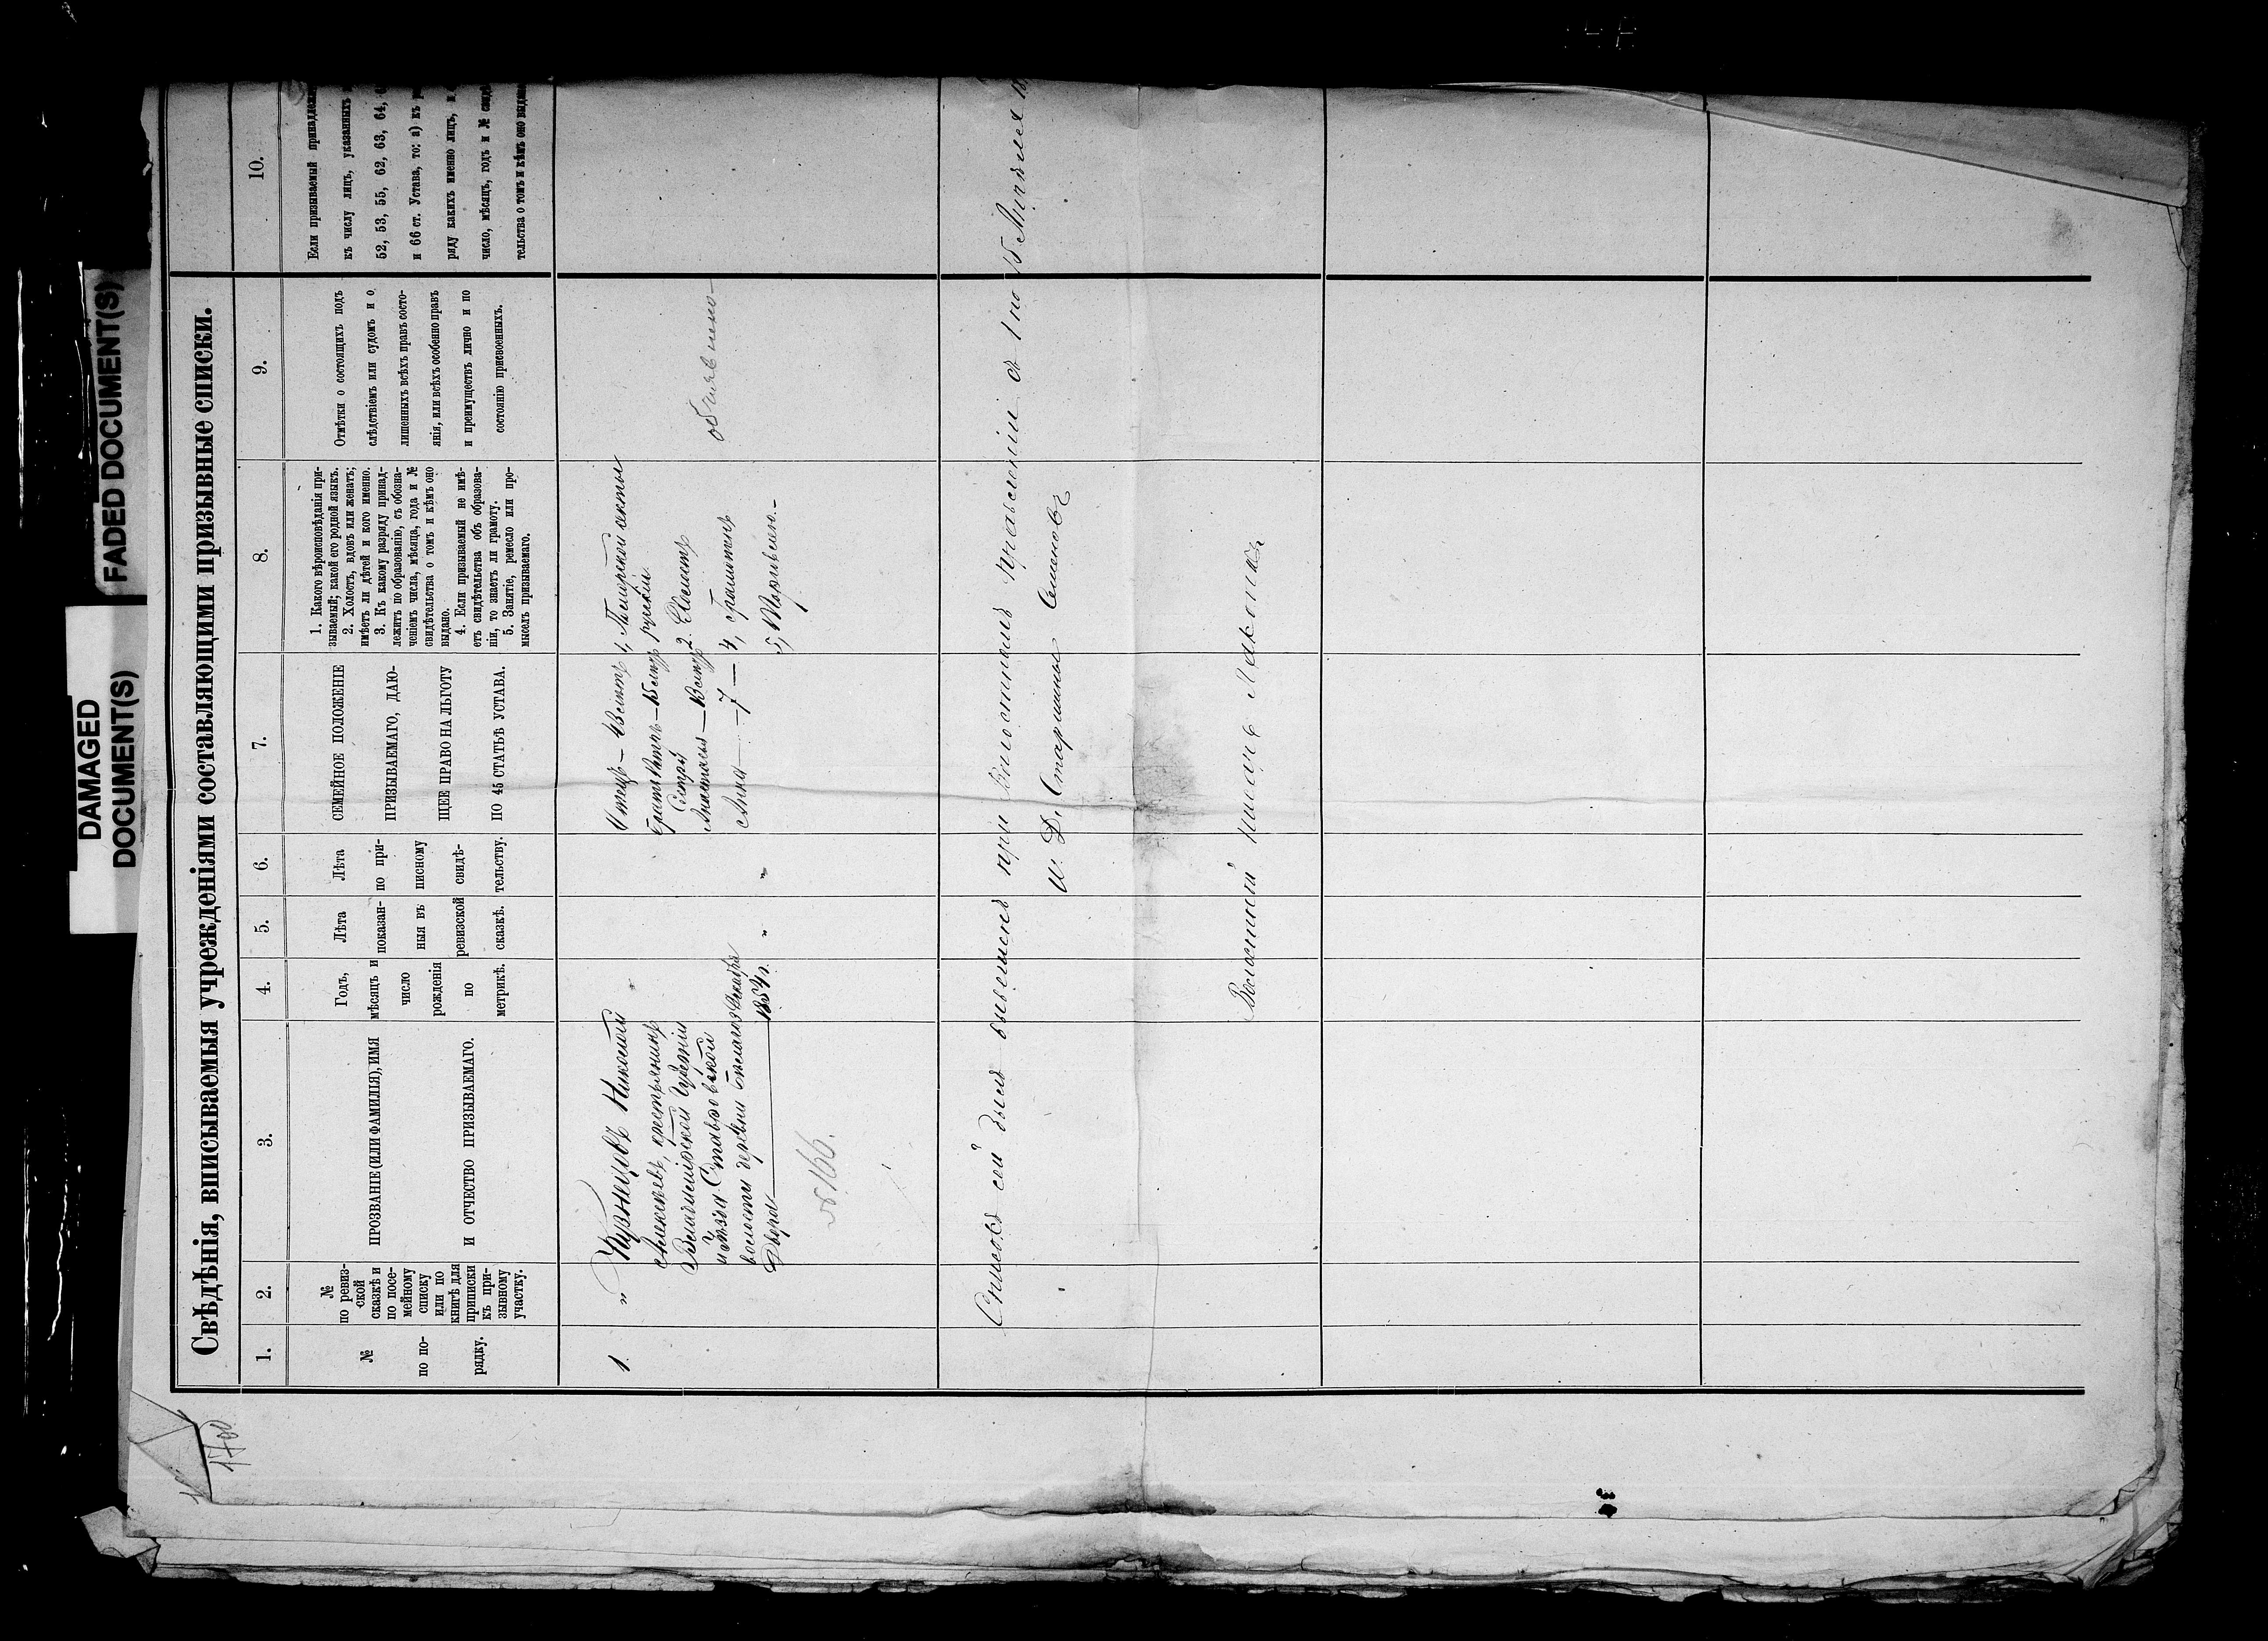 FADED DOCUMENT(S)
DAMAGED
DOCUMENT(S)
1700
Свѣдѣнія, вписываемыя учрежденіями составляющими призывные списки.
1.
2.
3.
4.
5.
6.
7.
8.
9.
10.
№
по по-
рядку.
№
по ревиз-
ской
сказкѣ и
по посе-
мейному
списку
или по
книгѣ для
приписки
къ при-
зывному
участку.
ПРОЗВАНІЕ (ИЛИ ФАМИЛІЯ), ИМЯ
И ОТЧЕСТВО ПРИЗЫВАЕМАГО.
Годъ,
мѣсяцъ и
число
рожденія
по
метрикѣ.
Лѣта
показан-
ныя въ
ревизской
сказкѣ.
Лѣта
по при-
писному
свидѣ-
тельству.
СЕМЕЙНОЕ ПОЛОЖЕНІЕ
ПРИЗЫВАЕМАГО, ДАЮ-
ЩЕЕ ПРАВО НА ЛЬГОТУ
ПО 45 СТАТЬѢ УСТАВА.
1. Какого вѣроисповѣданія при-
зываемый; какой его родной языкъ.
2. Холостъ, вдовъ или женатъ;
имѣетъ ли дѣтей и кого именно.
3. Къ какому разряду принад-
лежитъ по образованію, съ обозна-
ченіемъ числа, мѣсяца, года и №
свидѣтельства о томъ и кѣмъ оно
выдано.
4. Если призываемый не имѣ-
етъ свидѣтельства объ образова-
ніи, то знаетъ ли грамоту.
5. Занятіе, ремесло или про-
мыселъ призываемаго.
Отмѣтки о состоящихъ подъ
слѣдствіемъ или судомъ и о
лишенныхъ всѣхъ правъ состо-
янія, или всѣхъ особенно правъ
и преимуществъ лично и по
состоянію присвоенныхъ.
Если призываемый
къ числу лицъ, указанныхъ
52, 53, 55, 62, 63, 64,
и 66 ст. Устава, то: а) къ
ряду какихъ именно лицъ,
число, мѣсяцъ, годъ и №
тельства о томъ и кѣмъ оно
1.
"
Кузнецовъ Николай
Алексѣевъ, крестьянинъ
Владимірской Губерніи
уѣзда Ставровской
волости деревни Бѣлаго
Двора
№ 166.
3 Декабря
1854 г.
"
"
Отецъ —
братъ Петръ —
Сестры
Анастасія —
Анна — 7 —
1, Поморской секты
русскій
2. Холостъ
4, грамотенъ
5,
объявлено
Списокъ сей былъ вывѣшенъ при Волостномъ Правленіи съ 1 по 15 Апрѣля
И. Д. Старшины Семеновъ
Волостной писарь